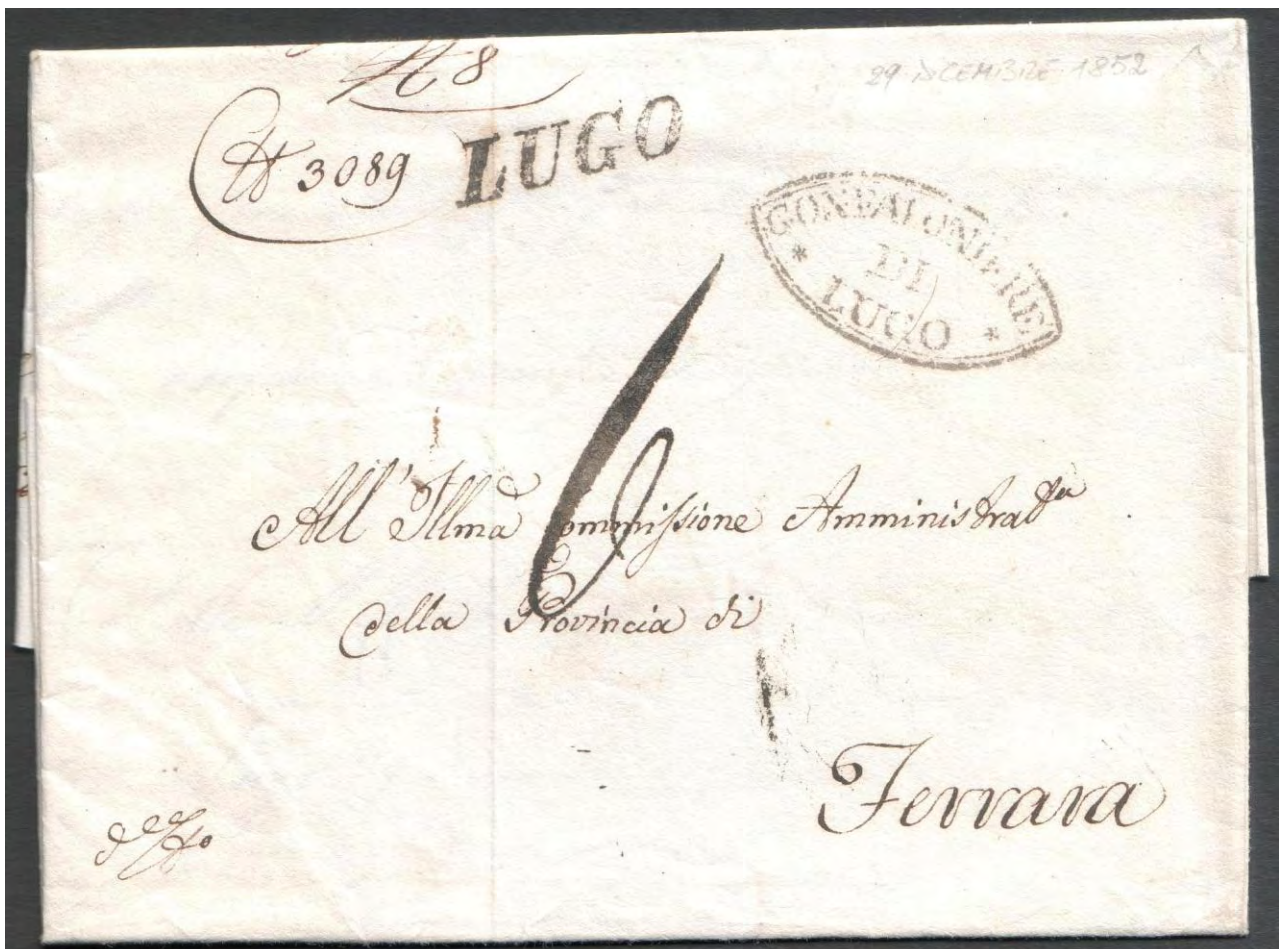 N 8
29 DICEMBRE 1852
N 3089
LUGO
GONFALONIERE
DI
LUGO
6
All' Illma Commissione Amministratta
della Provincia di
Ferrara